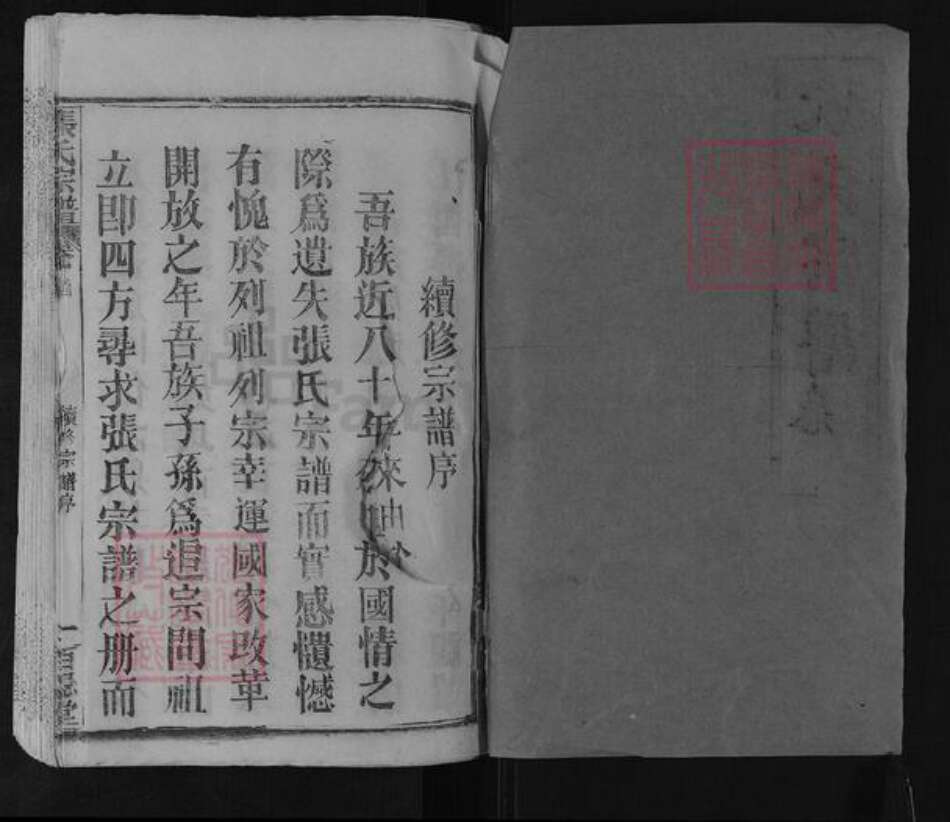 續修宗譜序
吾族近八十年來由於國情之
際爲遺失張氏宗譜而實感遺憾
有愧於列祖列宗幸運國家改革
開放之年吾族子孫爲追宗問祖
立即四方尋求張氏宗譜之册而
張氏宗譜 卷首
續修宗譜序
一 百忍堂